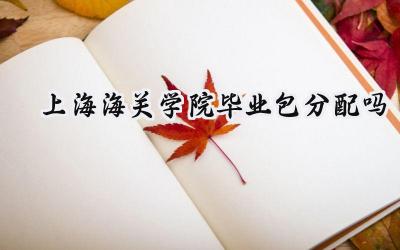 上海海关学院毕业包分配吗